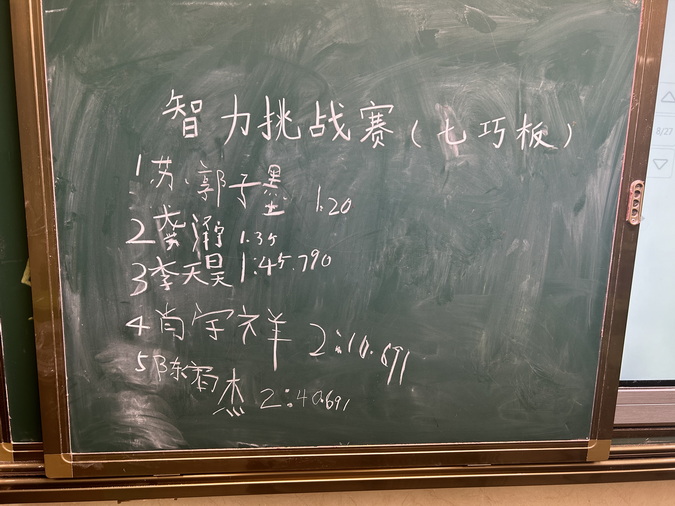 智力挑战赛(七巧板)
1苏、郭子墨 1:20
2 1.35
3李天昊 1:45.790
4肖宇祥 2:10.691
5陈杰 2:40.691
8/27